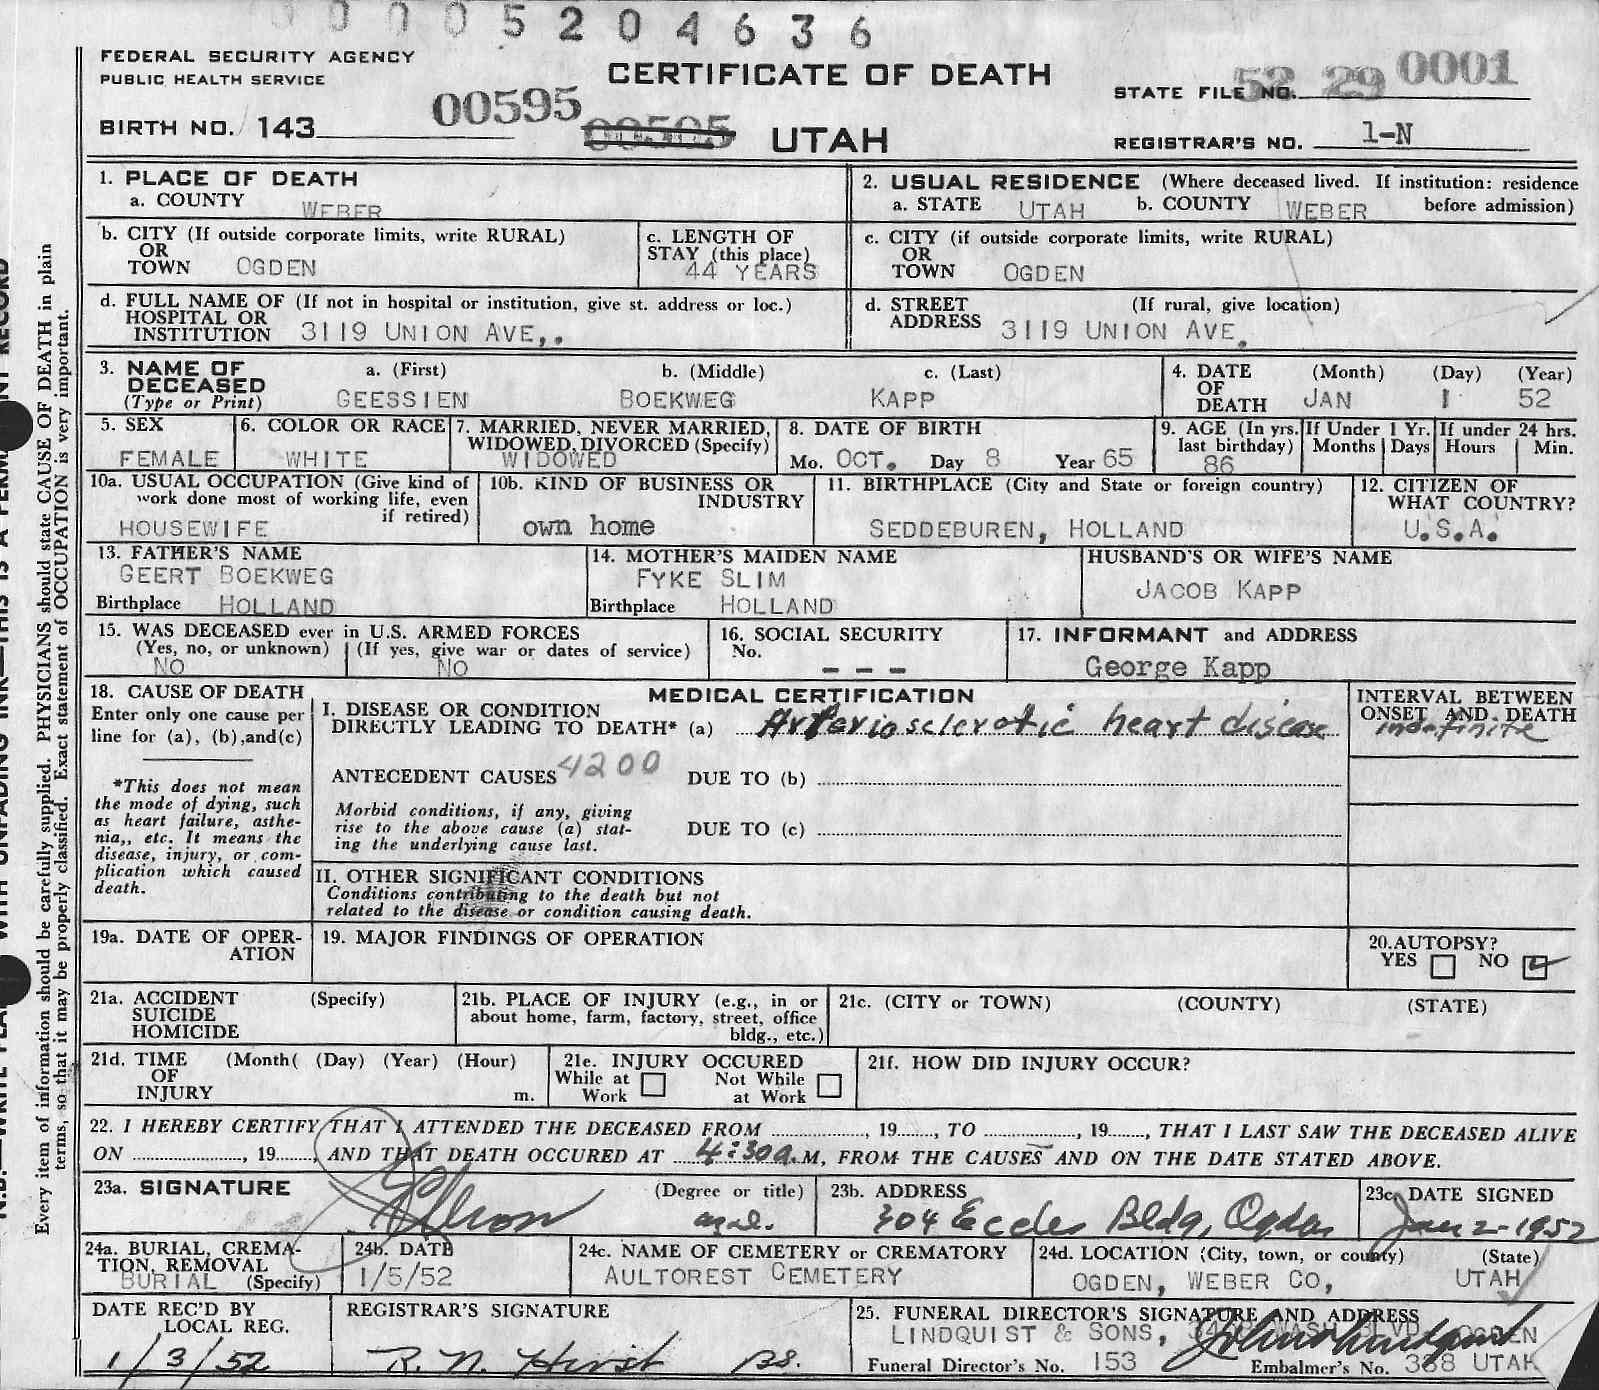 0005204636
FEDERAL SECURITY AGENCY
PUBLIC HEALTH SERVICE
CERTIFICATE OF DEATH
STATE FILE NO. 52 29 0001
BIRTH NO. 143
00595
00595
UTAH
REGISTRAR'S NO. 1-N
1. PLACE OF DEATH
a. COUNTY WEBER
2. USUAL RESIDENCE (Where deceased lived. If institution: residence
a. STATE UTAH b. COUNTY WEBER before admission)
b. CITY (If outside corporate limits, write RURAL)
OR
TOWN OGDEN
c. LENGTH OF
STAY (this place)
44 YEARS
c. CITY (if outside corporate limits, write RURAL)
OR
TOWN OGDEN
d. FULL NAME OF (If not in hospital or institution, give st. address or loc.)
HOSPITAL OR
INSTITUTION 3119 UNION AVE,.
d. STREET (If rural, give location)
ADDRESS 3119 UNION AVE.
3. NAME OF
DECEASED
(Type or Print)
a. (First) b. (Middle) c. (Last)
GEESSIEN BOEKWEG KAPP
4. DATE (Month) (Day) (Year)
OF
DEATH JAN 1 52
5. SEX
FEMALE
6. COLOR OR RACE
WHITE
7. MARRIED, NEVER MARRIED,
WIDOWED, DIVORCED (Specify)
WIDOWED
8. DATE OF BIRTH
Mo. OCT. Day 8 Year 65
9. AGE (In yrs.
last birthday)
86
If Under 1 Yr.
Months Days
If under 24 hrs.
Hours Min.
10a. USUAL OCCUPATION (Give kind of
work done most of working life, even
if retired)
HOUSEWIFE
10b. KIND OF BUSINESS OR
INDUSTRY
own home
11. BIRTHPLACE (City and State or foreign country)
SEDDEBUREN, HOLLAND
12. CITIZEN OF
WHAT COUNTRY?
U.S.A.
13. FATHER'S NAME
GEERT BOEKWEG
Birthplace HOLLAND
14. MOTHER'S MAIDEN NAME
FYKE SLIM
Birthplace HOLLAND
HUSBAND'S OR WIFE'S NAME
JACOB KAPP
15. WAS DECEASED ever in U.S. ARMED FORCES
(Yes, no, or unknown) (If yes, give war or dates of service)
NO NO
16. SOCIAL SECURITY
No. - - -
17. INFORMANT and ADDRESS
George Kapp
18. CAUSE OF DEATH
Enter only one cause per
line for (a), (b), and (c)
*This does not mean
the mode of dying, such
as heart failure, asthe-
nia,, etc. It means the
disease, injury, or com-
plication which caused
death.
MEDICAL CERTIFICATION
I. DISEASE OR CONDITION
DIRECTLY LEADING TO DEATH* (a) Arteriosclerotic heart disease
INTERVAL BETWEEN
ONSET AND DEATH
indefinite
ANTECEDENT CAUSES 4200 DUE TO (b)
Morbid conditions, if any, giving
rise to the above cause (a) stat-
ing the underlying cause last.
DUE TO (c)
II. OTHER SIGNIFICANT CONDITIONS
Conditions contributing to the death but not
related to the disease or condition causing death.
19a. DATE OF OPER-
ATION
19. MAJOR FINDINGS OF OPERATION
20. AUTOPSY?
YES NO
21a. ACCIDENT (Specify)
SUICIDE
HOMICIDE
21b. PLACE OF INJURY (e.g., in or
about home, farm, factory, street, office
bldg., etc.)
21c. (CITY or TOWN) (COUNTY) (STATE)
21d. TIME (Month( (Day) (Year) (Hour)
OF
INJURY m.
21e. INJURY OCCURED
While at Work Not While at Work
21f. HOW DID INJURY OCCUR?
22. I HEREBY CERTIFY THAT I ATTENDED THE DECEASED FROM ........, 19....., TO ........, 19....., THAT I LAST SAW THE DECEASED ALIVE
ON ........, 19....., AND THAT DEATH OCCURED AT 4:30 a.M, FROM THE CAUSES AND ON THE DATE STATED ABOVE.
23a. SIGNATURE (Degree or title)
23b. ADDRESS
304 Eccles Bldg, Ogden
23c. DATE SIGNED
Jan 2-1952
24a. BURIAL, CREMA-
TION, REMOVAL
BURIAL (Specify)
24b. DATE
1/5/52
24c. NAME OF CEMETERY OR CREMATORY
AULTOREST CEMETERY
24d. LOCATION (City, town, or county) (State)
OGDEN, WEBER CO, UTAH
DATE REC'D BY
LOCAL REG.
1/3/52
REGISTRAR'S SIGNATURE
R. N. Hirst
25. FUNERAL DIRECTOR'S SIGNATURE AND ADDRESS
LINDQUIST & SONS, WASH BLVD OGDEN
Funeral Director's No. 153 Embalmer's No. 388 UTAH
Every item of information should be carefully supplied. PHYSICIANS should state CAUSE OF DEATH in plain
terms, so that it may be properly classified. Exact statement of OCCUPATION is very important.